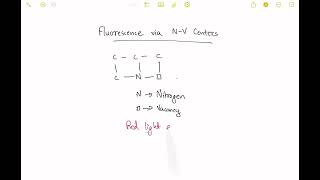 Fluorescence via N-V Centers
C - C - C
C - N - □
N → Nitrogen
□ → Vacancy
Red light